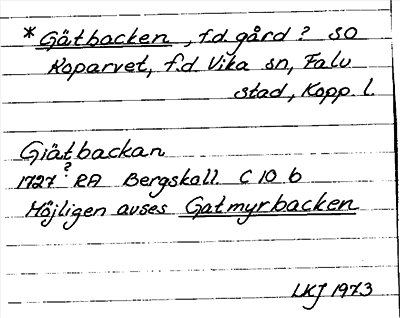 * Gätbacken, f.d. gård? SO
Koparvet, f.d. Vika sn, Falu
stad, Kopp. l.
Giätbackan
1727? RA Bergskoll. C 10 b
Möjligen avses Gatmyrbacken
LKJ 1973